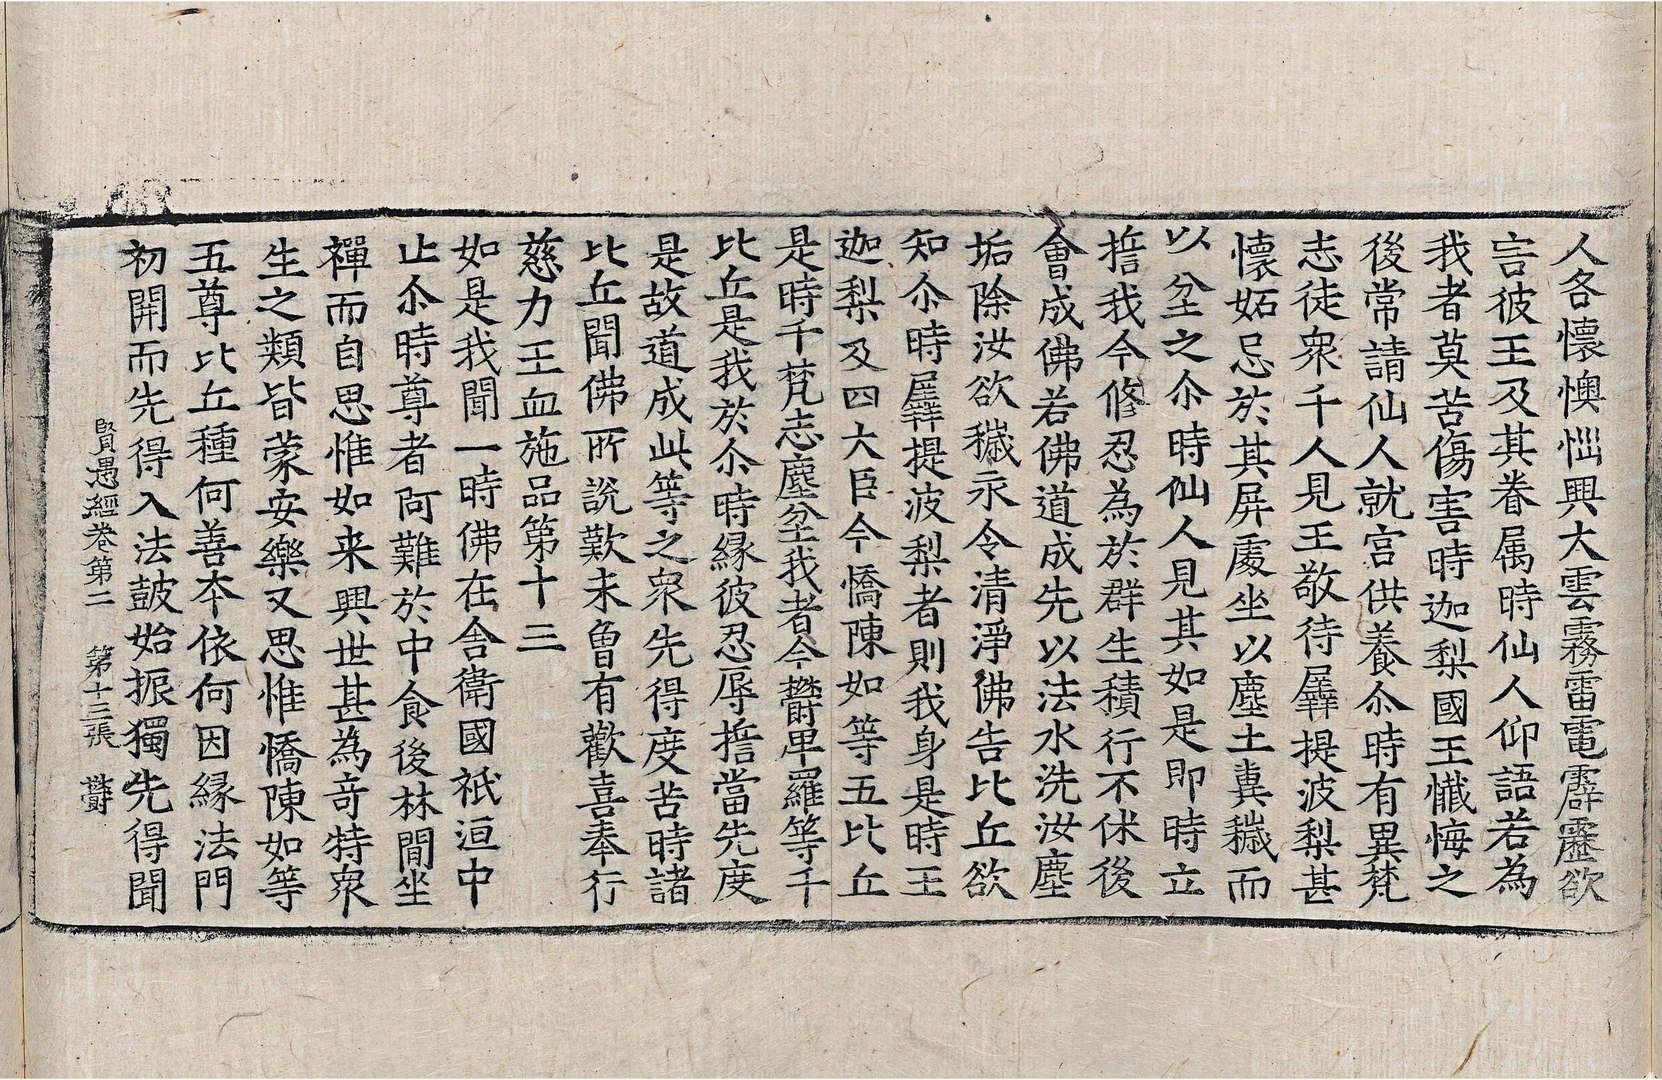 人各懷懊惱興大雲霧雷電霹靂欲
害彼王及其眷属時仙人仰語若為
我者莫苦傷害時迦梨國王懺悔之
後常請仙人就宫供養尒時有異梵
志徒衆千人見王敬待羼提波梨甚
懷妬忌於其屏處坐以塵土糞穢而
以坌之尒時仙人見其如是即時立
擔我今修忍為於群生積行不休後
會成佛若佛道成先以法水洗汝塵
垢除汝欲穢永令清淨佛告比丘欲
知尒時羼提波梨者則我身是時王
迦梨及四大臣今憍陳如等五比丘
是時千梵志塵坌我者今欝卑羅等千
比丘是我於尒時縁彼忍辱擔當先度
是故道成此等之衆先得度苦時諸
比丘聞佛所說歎未曾有歡喜奉行
慈力王血施品第十三
如是我聞一時佛在舍衛國祇洹中
止尒時尊者阿難於中食後林間坐
禪而自思惟如来興世甚為竒特衆
生之類皆蒙安樂又思惟憍陳如等
五尊比丘種何善本依何因縁法門
初開而先得入法皷始振獨先得聞
賢愚經卷第二　第十三張　欝